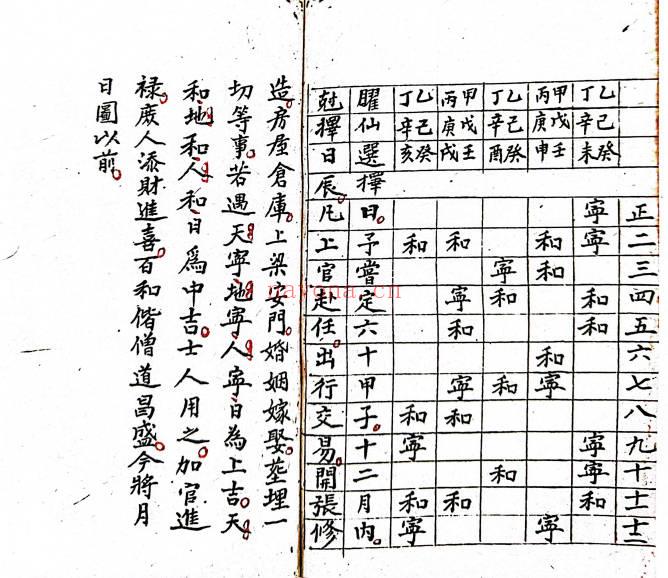 正二三四五六七八九十十一十二
乙丁己辛癸未寧寧和和寧寧和
甲丙戊庚壬申和和和寧寧
乙丁己辛癸酉寧和和和
甲丙戊庚壬戌和寧和寧和和
乙丁己辛癸亥和和寧和寧
曜仙選擇日予嘗定六十甲子。十二月内。
尅擇日辰。凡上官赴任。出行交易。開張修
造。房屋倉庫。上梁安門。婚姻嫁娶。塟埋一
切等事。若遇天寧地寧人寧日為上吉。天
和地和人和日爲中吉。士人用之。加官進
禄。庻人添財進喜。百和偕僧道昌盛。今將月
日圖以前。
nayona.cn